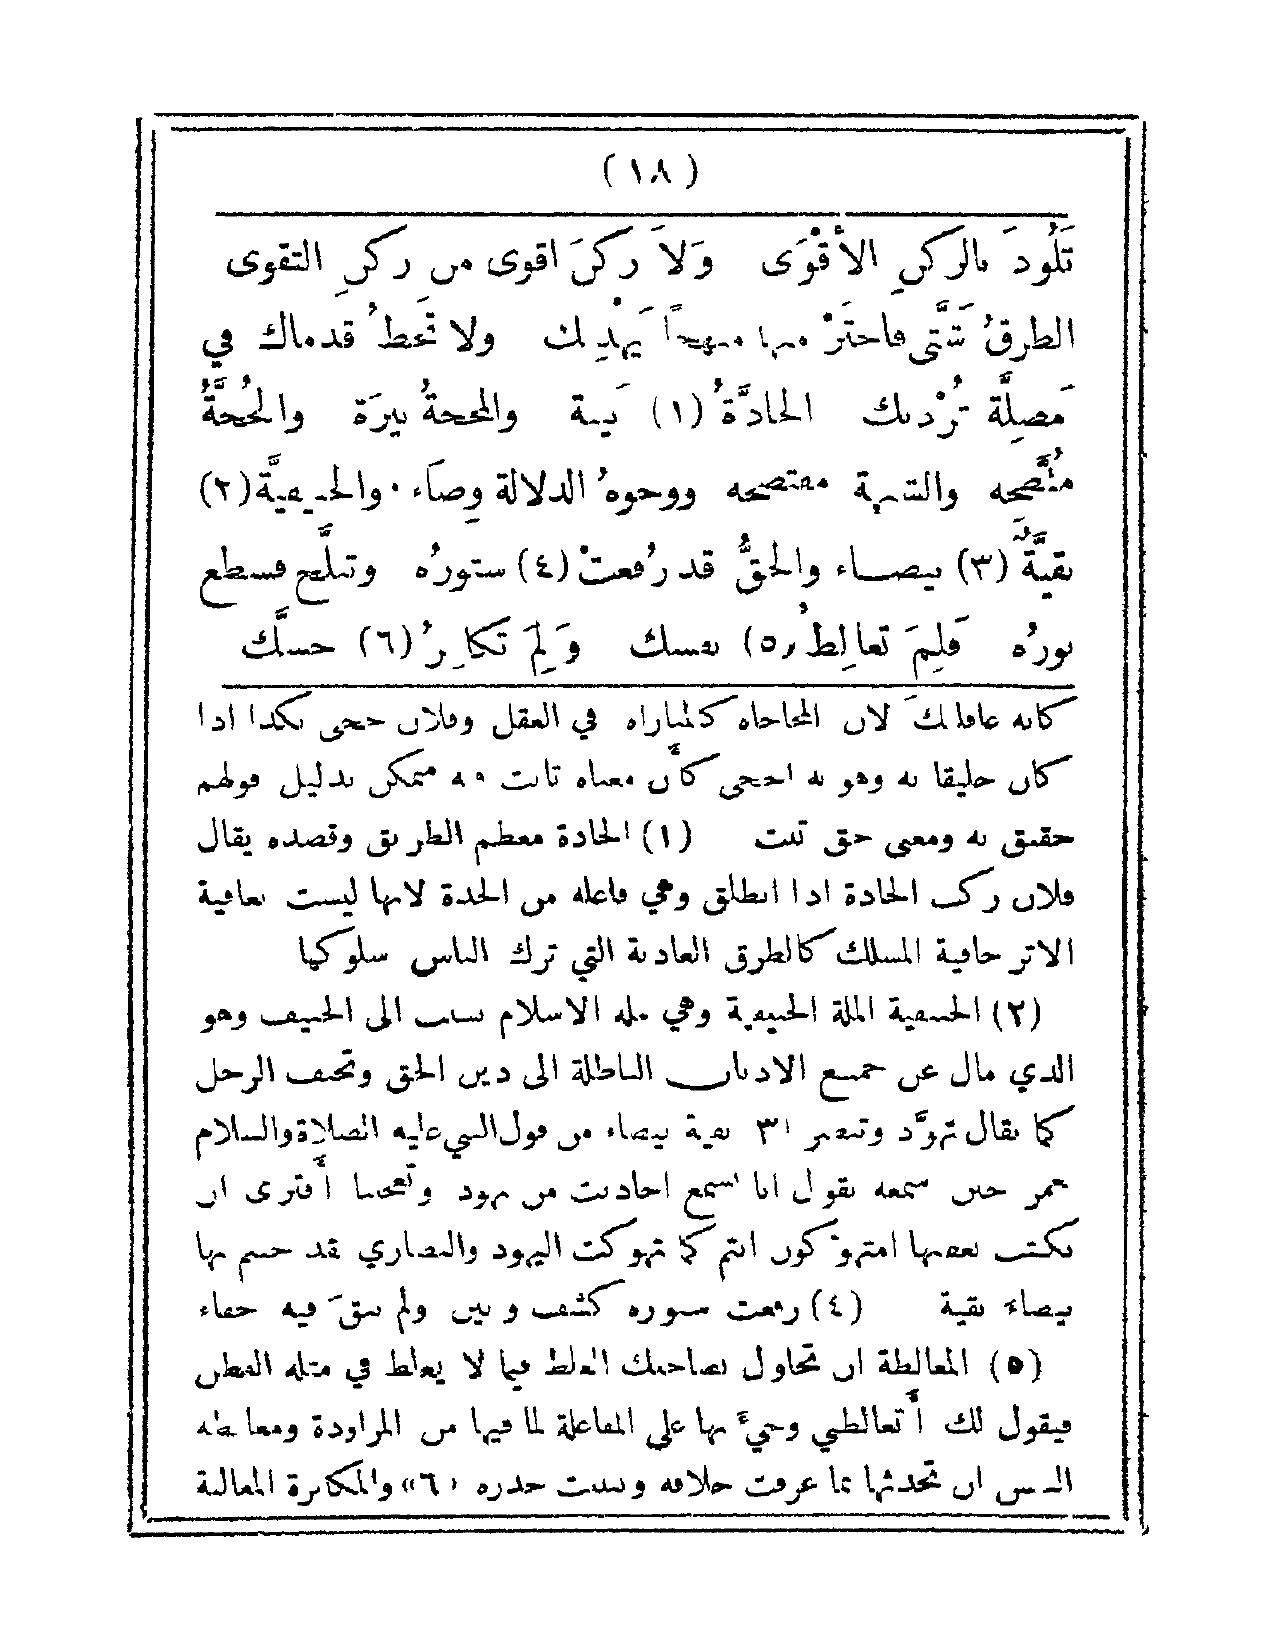 ( ١٨ )
تَلُوذَ بالركنِ الأَقْوَى وَلاَ ركنَ اقوى من ركنِ التقوى
الطرقُ شَتَّى فاخترْ منها منهجاً يَهْدِيك ولا تخطُ قدماك في
مَضِلَّة تُرْدِيك الجادَّةُ (١) بَينة والمحجةُ نيرَة والحُجَّةُ
مُتَّضحه والشبهة مفتضحه ووجوهُ الدلالة وِضَاء والحنيفيَّة (٢)
نقيَّة (٣) بيضاء والحقُّ قد رُفعتْ (٤) ستورُه وتبلَّج فسطع
نورُه فَلِمَ تغالِطُ (٥) نفسك وَلِمَ تكابِرُ (٦) حسَّك
كانه عاقبك لان المحاجاه كالمباراه في العقل وفلان حجى بكذا اذا
كان خليقا به وهو به احجى كأن معناه ثابت به متمكن بدليل قولهم
حقيق به ومعنى حق ثبت (١) الجادة معظم الطريق وقصده يقال
فلان ركب الجادة اذا انطلق وهي فاعله من الجدة لانها ليست بعافية
الاثر خافية المسلك كالطرق العادية التي ترك الناس سلوكها
(٢) الحنيفية الملة الحنيفية وهي مله الاسلام نسبت الى الحنيف وهو
الذي مال عن جميع الاديان الباطلة الى دين الحق وتحنف الرجل
كما يقال تهوَّد وتنصر (٣) نقية بيضاء من قول النبي عليه الصلاة والسلام
لعمر حين سمعه يقول انا نسمع احاديث من يهود وتعجبنا أفترى ان
نكتب بعضها امتهوكون انتم كما تهوكت اليهود والنصارى لقد جئتكم بها
بيضاء نقية (٤) رفعت ستوره كشف وبين ولم يبقَ فيه خفاء
(٥) المغالطة ان تحاول بصاحبك الغلط فيما لا يغلط في مثله الفطن
فيقول لك أتغالطني وجيء بها على المفاعلة لما فيها من المراودة ومغالطة
النفس ان تحدثها بما عرفت خلافه ونسيت حذره «٦» والمكابرة المغالبة